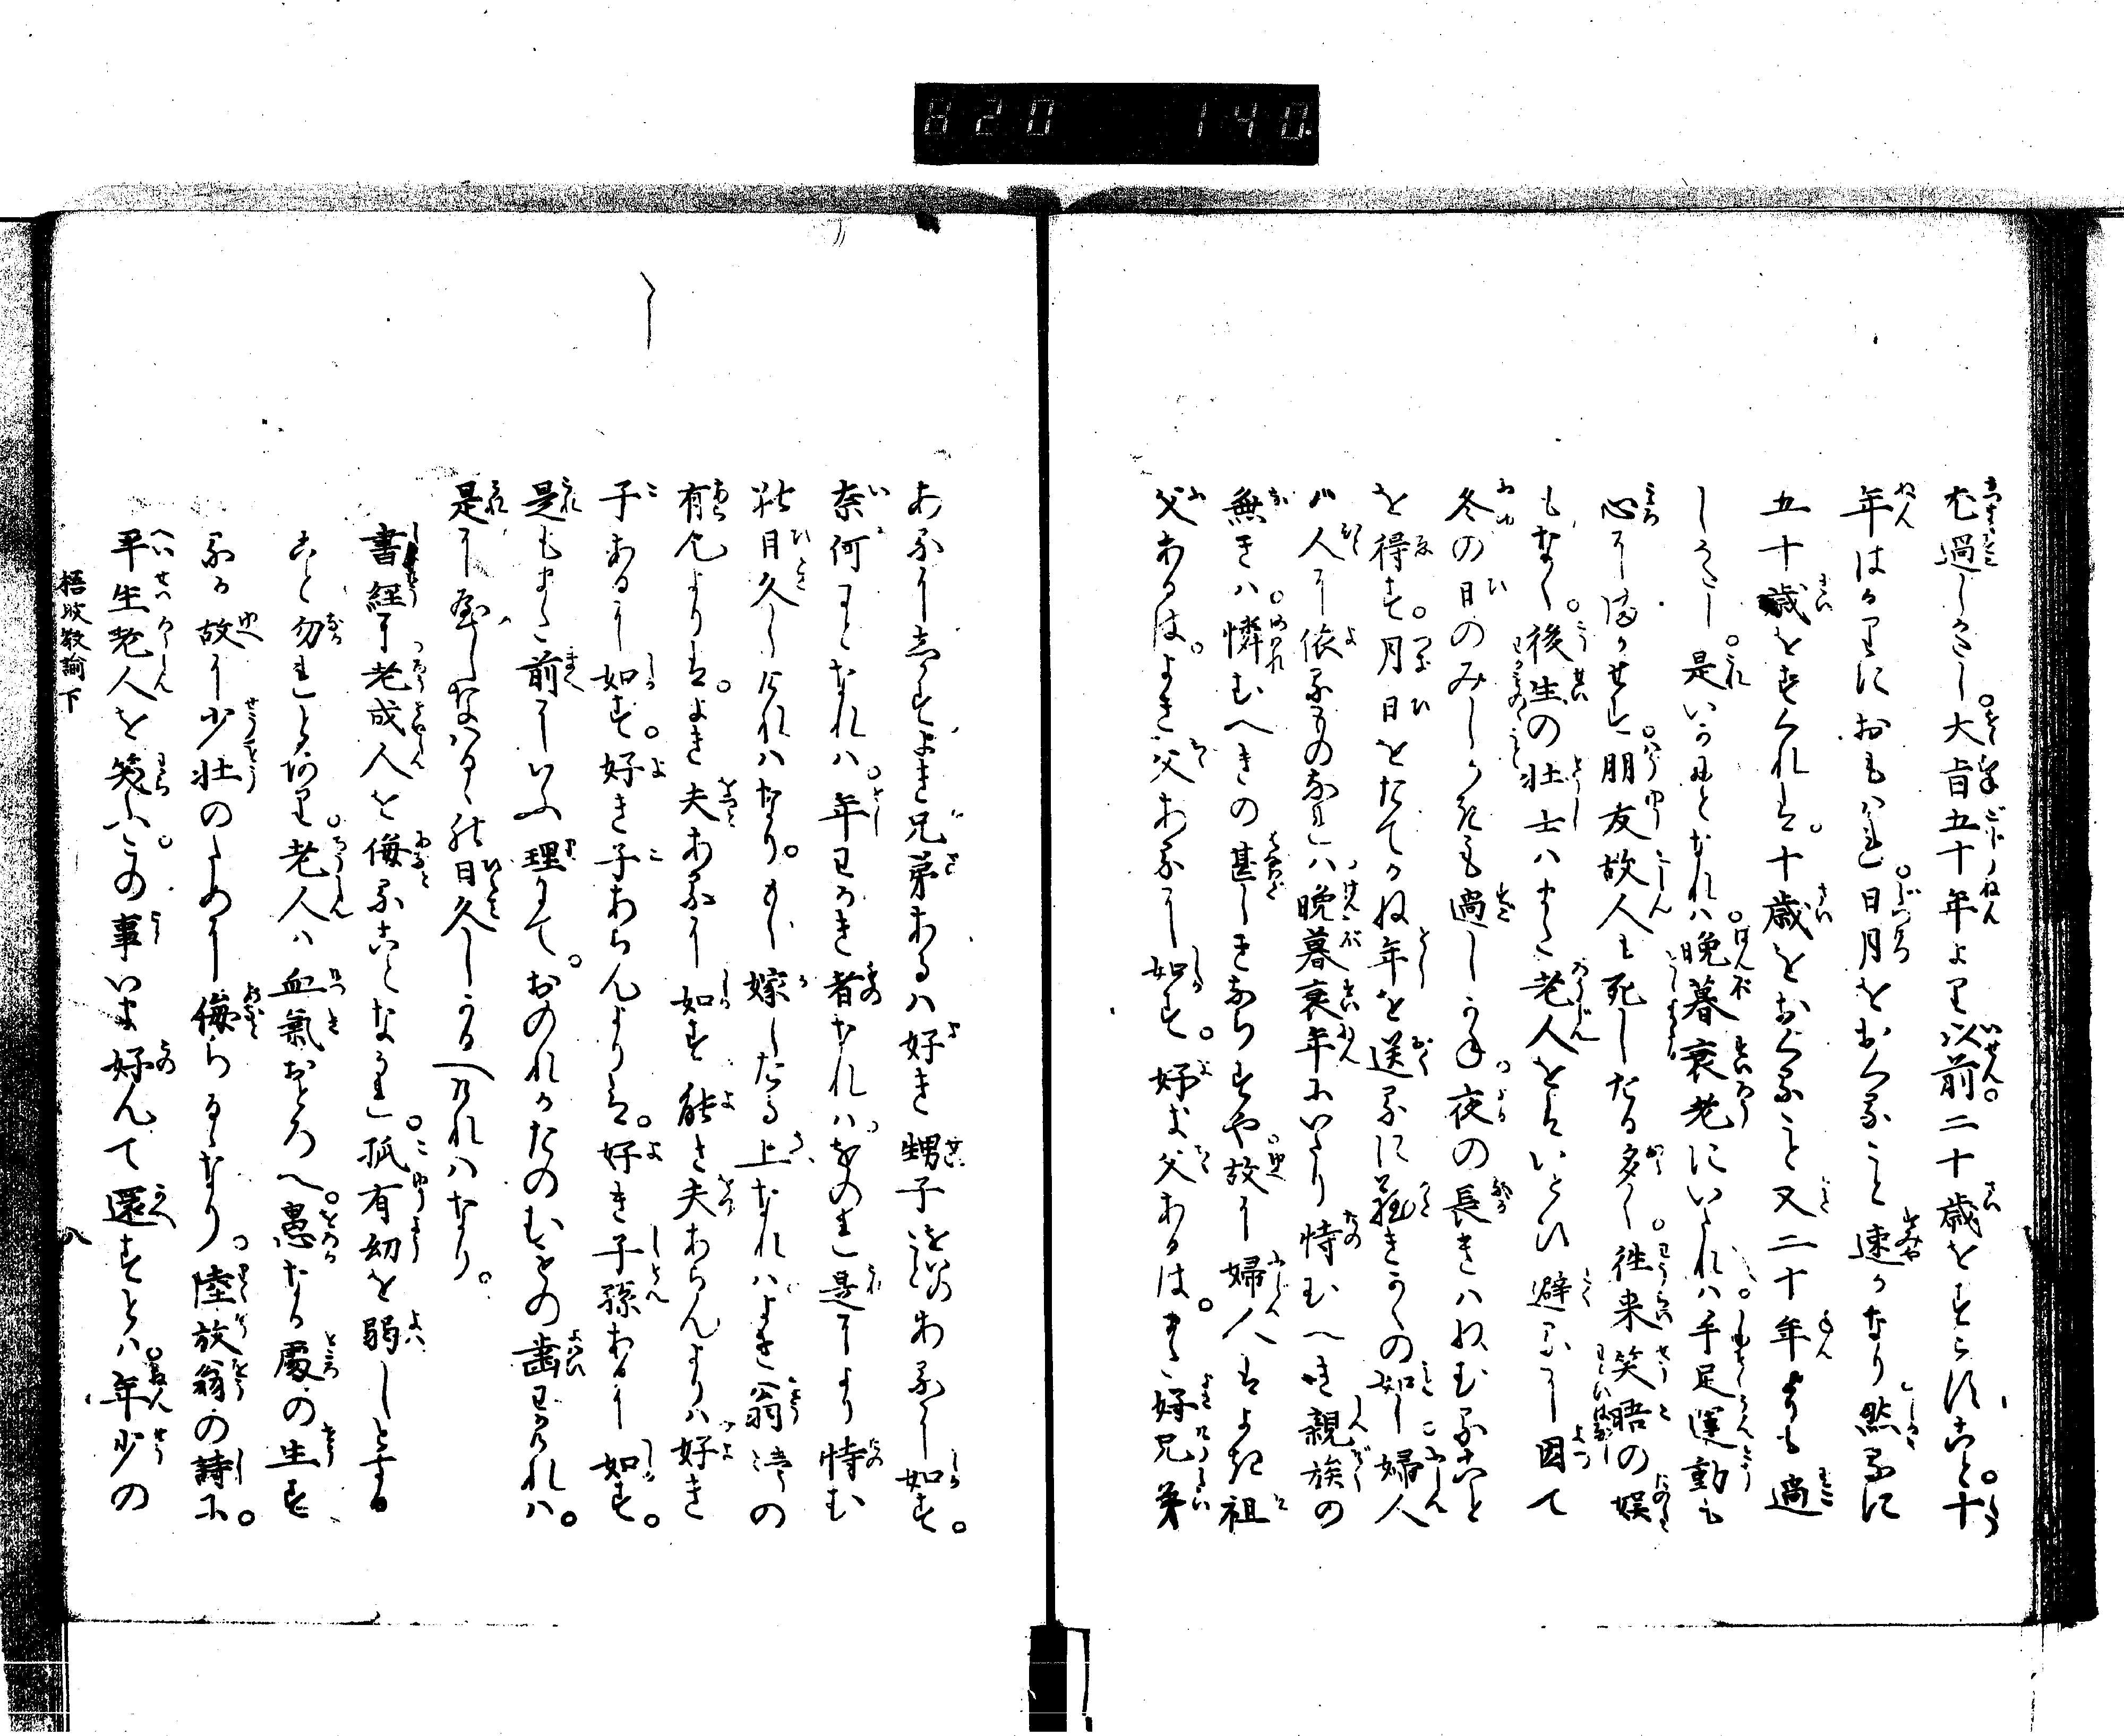 820 140.
尤過しかたし大旨五十年より以前二十歳をすこすこと。十
年はかりにおもハれ日月をおくること速かなり然るに
五十歳をすくれは。十歳をおくること又二十年よりも過
しかたし。是いかんとなれハ晩暮衰老にいたれハ手足運動も
心にまかせす。朋友故人も死したる多く。往来笑晤の娯
もなく。後生の壮士ハまた老人をはいとひ避るに因て
冬の日のみしかきも過しかね夜の長きハねむること
を得す。月日をたてかね年を送るに難きかくの如し婦人
ハ人に依るものなれハ晩暮衰年にいたり恃むへき親族の
無きハ。憐むへきの甚しきならすや故に婦人はよき祖
父あるは。よき父あるに如す。好き父あるは。また好兄弟
あるにしかすよき兄弟あるハ好き甥子あるに如す。
奈何となれハ。年わかき者なれハ。をのれ是により恃む
比日久しけれハなり。もし嫁したる上なれハよき翁の
有んよりは。よき夫あるに如す能き夫あらんよりハ好き
子あるに如す。好き子あらんよりは。好き子孫あるに如す。
是もまた前にいふ理にて。おのれかたのむものの歯わかけれハ。
是に至りなハ比日久しかるへけれハなり。
書経に老成人を侮ることなかれ。孤有幼を弱しとする
こと勿れと有り。老人ハ血氣おとろへ。愚なる處の生す
る故に少壮のために侮らるゝなり。陸放翁の詩に。
平生老人を笑ふ。この事いま好んて還すとハ。年少の
梧陂教諭下
八